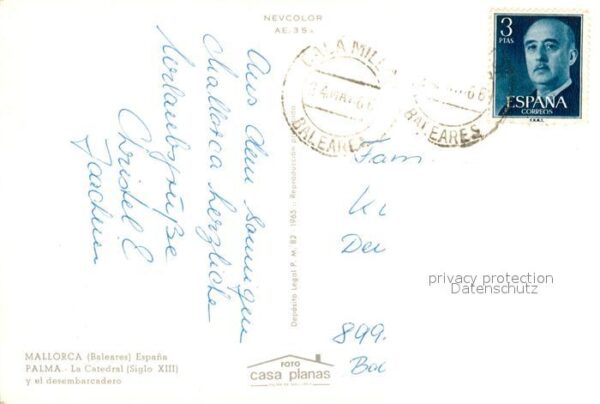 NEVCOLOR
AE. 35
Aus dem sonnigen
Mallorca herzliche
Urlaubsgrüße
Christel &
Joachim
MALLORCA (Baleares) España
PALMA.- La Catedral (Siglo XIII)
y el desembarcadero
Depósito Legal P. M. 82 - 1965
FOTO
casa planas
3
PTAS
ESPAÑA
CORREOS
CALA MILLOR
BALEARES
BALEARES
Fam
Ki
899.
privacy protection
Datenschutz